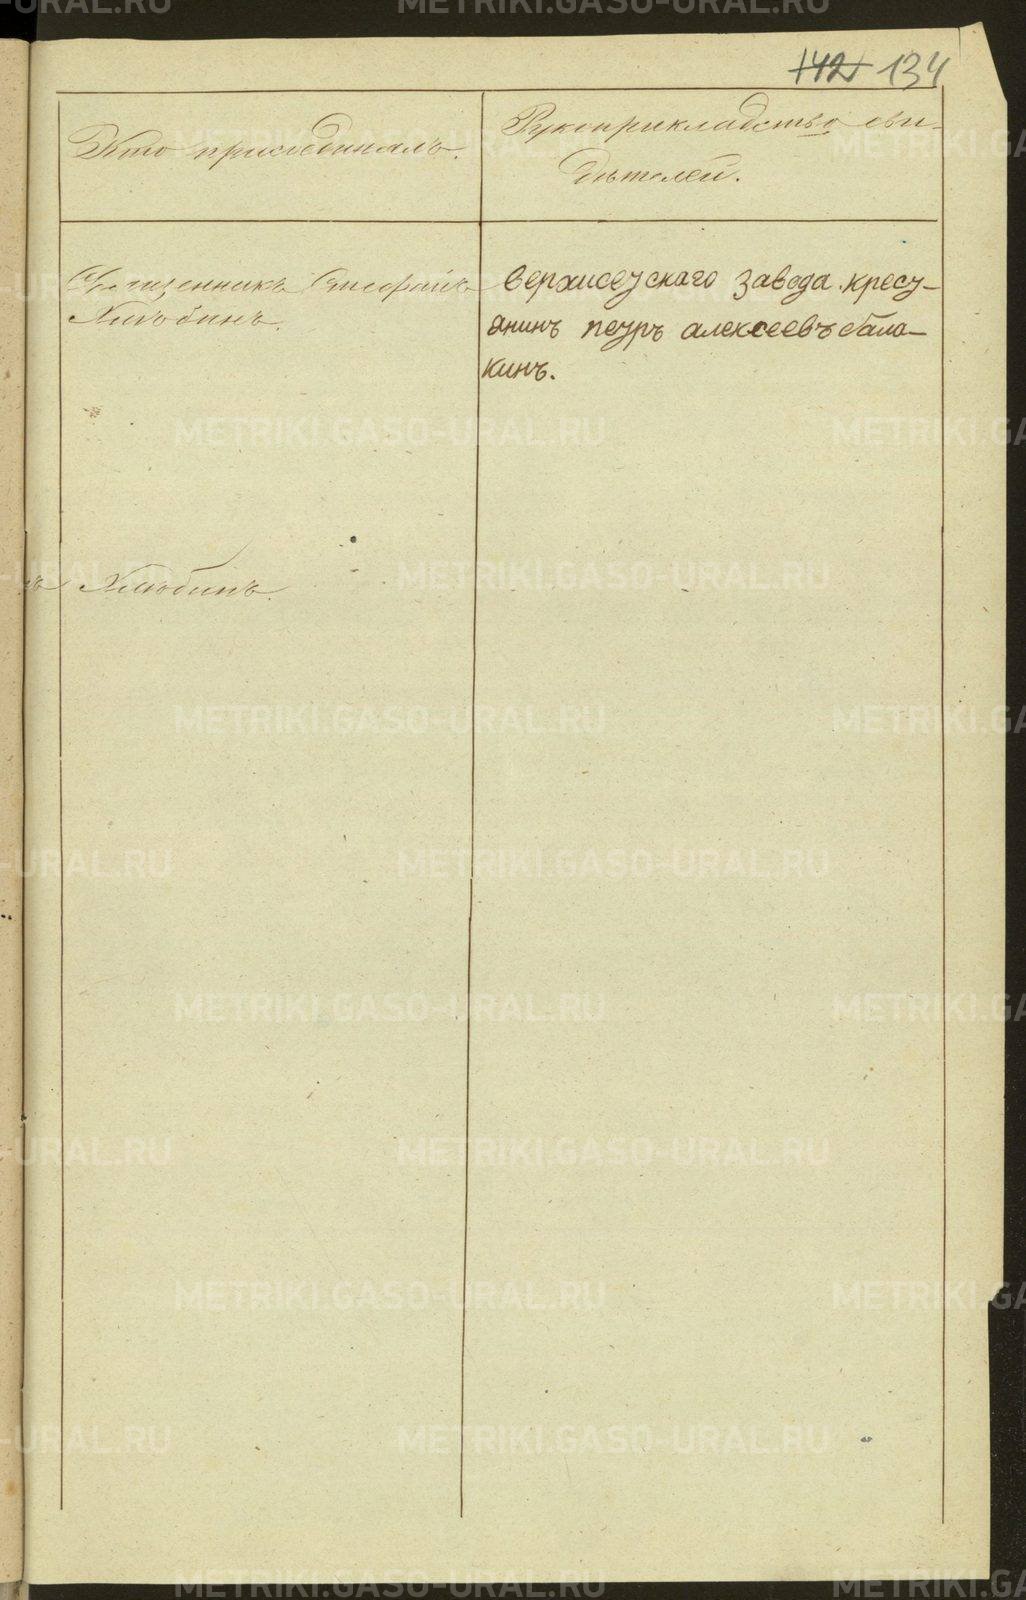 142 134
Кто присоединялъ.
Рукоприкладство сви-
дѣтелей.
Священникъ Стефанъ
Хлюбинъ.
верхисецскаго завода кресу-
янинъ петръ алексеевъ бала-
кинъ.
ъ Хлюбинъ.
METRIKI.GASO-URAL.RU